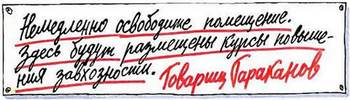 Немедленно освободите помещение.
Здесь будут размещены курсы повыше-
ния завхозности. Товарищ Тараканов